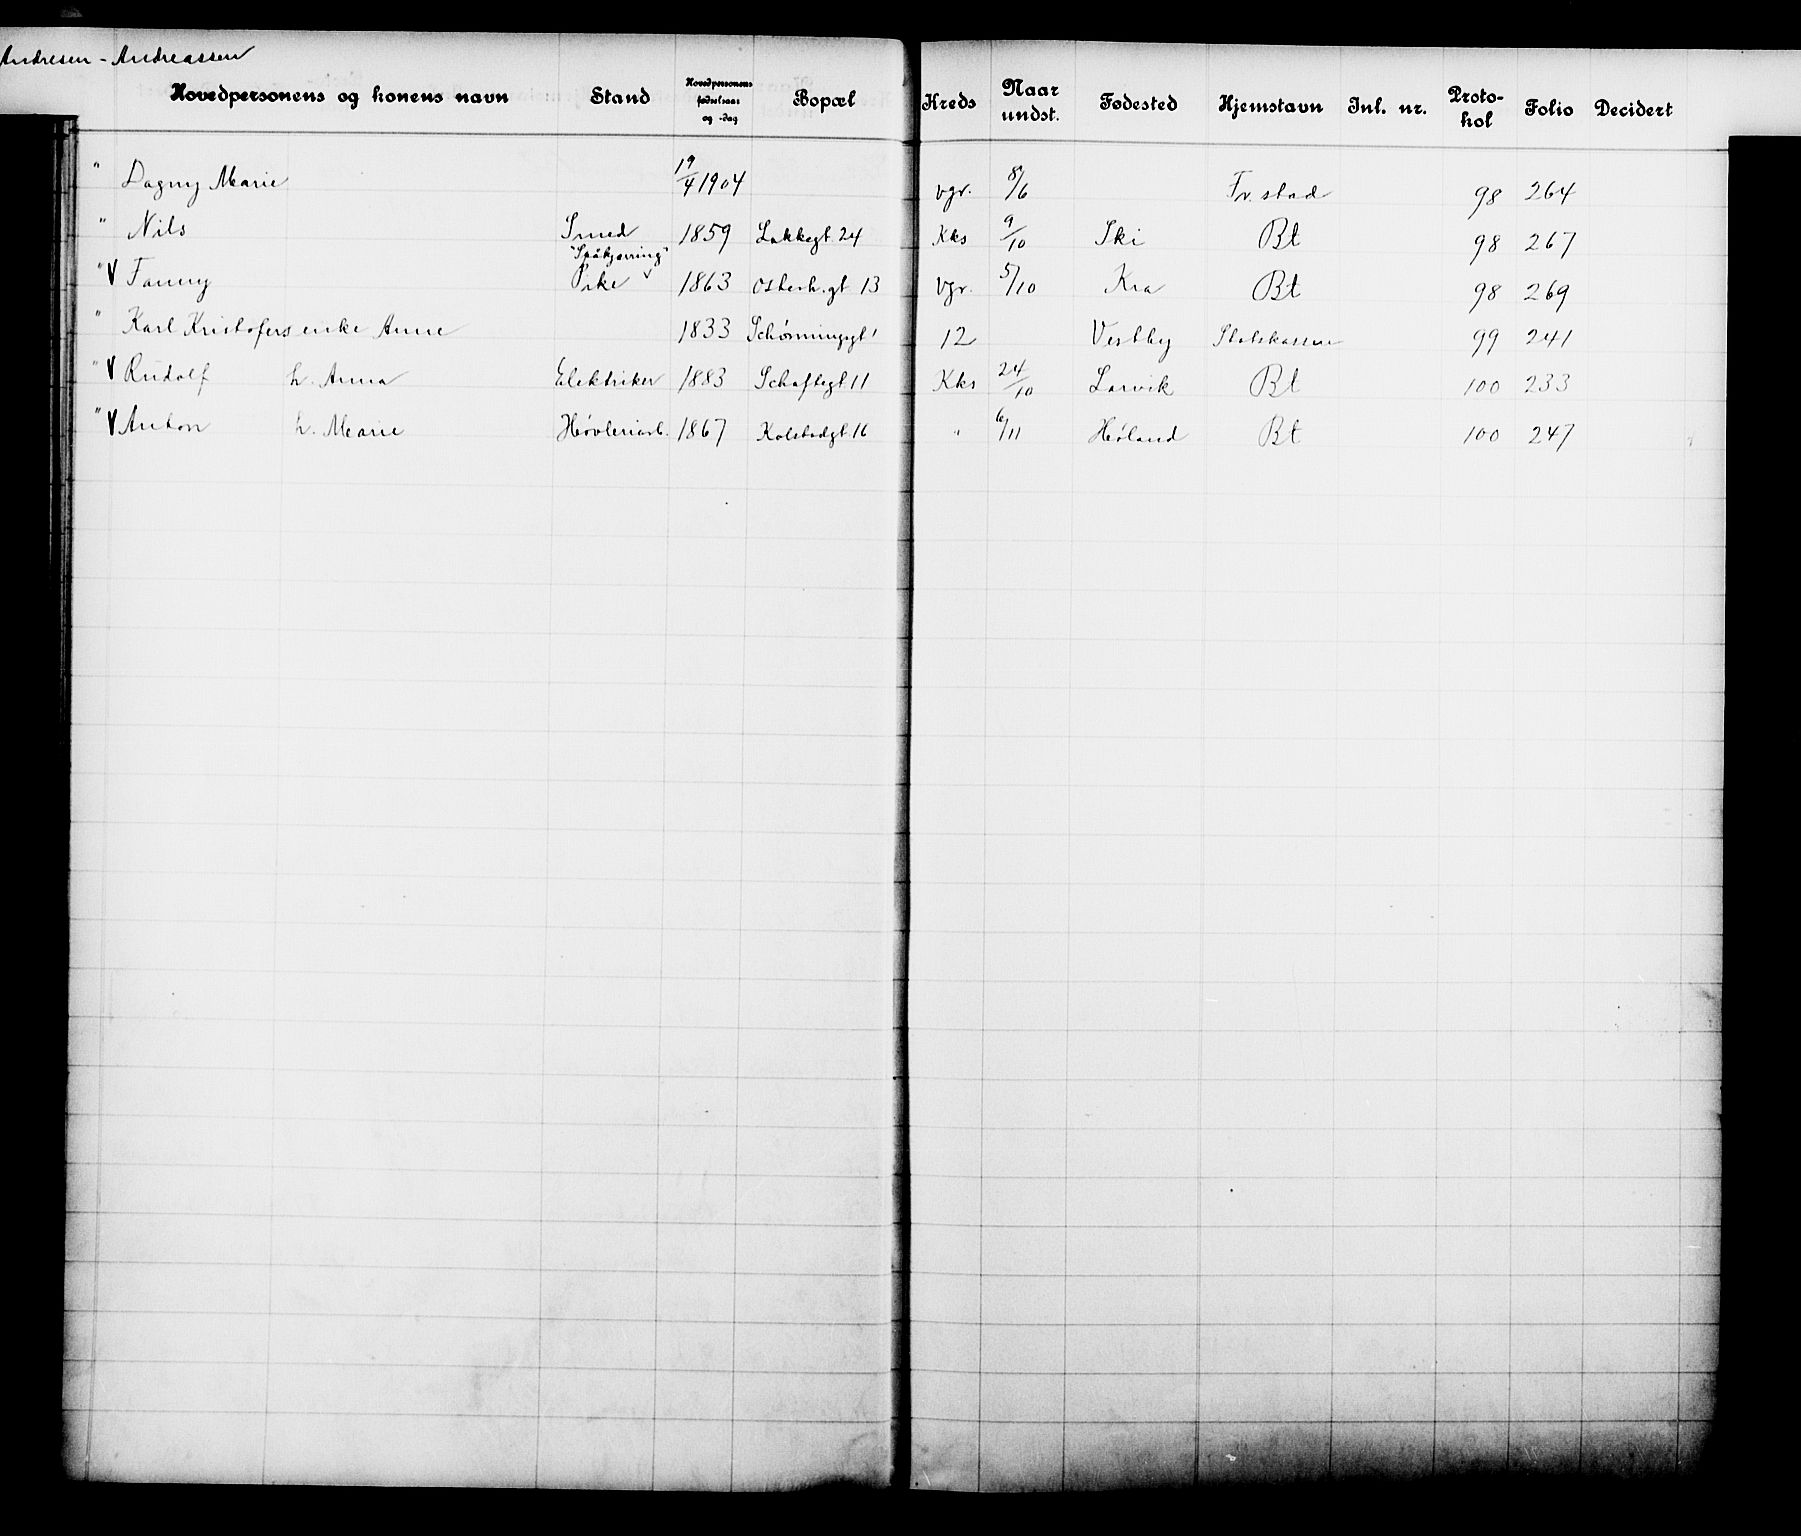 Andresen - Andreassen
Hovedpersonens og konens navn Stand Hovedpersonens fødselsaar og -dag Bopæl Kreds Naar undst. Fødested Hjemstavn Inl. nr. Protokol Folio Decidert
" Dagny Marie 19/4 1904 vgr. 8/6 Fr.stad 98 264
" Nils Smed 1859 Lakkegt 24 Kks 9/10 Ski Bt 98 267
" V Fanny "Spåkjærring" Pike v 1863 Osterh.gt 13 Vgr. 5/10 Kra Bt 98 269
" Karl Kristofers enke Anne 1833 Schønningsgt 1 12 Vestby Statskassen 99 241
" V Rudolf h. Anna Elektriker 1883 Schaftegt 11 Kks 24/10 Larvik Bt 100 233
" V Anton h. Marie Høvleriarb. 1867 Kolstadgt 16 " 6/11 Høland Bt 100 247